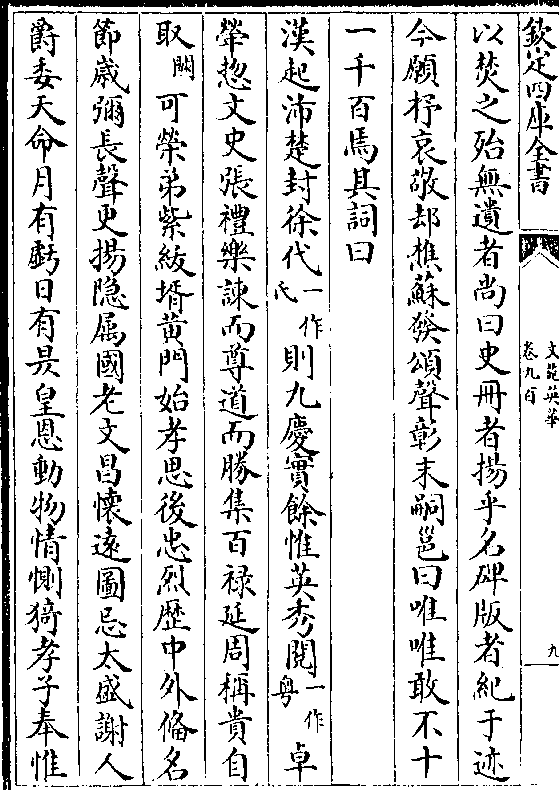 欽定四庫全書
文苑英華
卷九百
九
以焚之殆無遺者尚曰史冊者揚乎名碑版者紀于迹
今願抒哀敬却樵蘇發頌聲彰末嗣邕曰唯唯敢不十
一千百焉其詞曰
漢起沛楚封徐代一作氏則九慶實餘惟英秀閱一作粤卓
犖惣文史張禮樂諫而尊道而勝集百禄延周稱貴自
取闕可榮弟紫紱壻黄門始孝思後忠烈歴中外偹名
節嵗彌長聲更揚隐属國老文昌懐逺圖忌太盛謝人
爵委天命月有虧日有昃皇恩動物情惻猗孝子奉惟